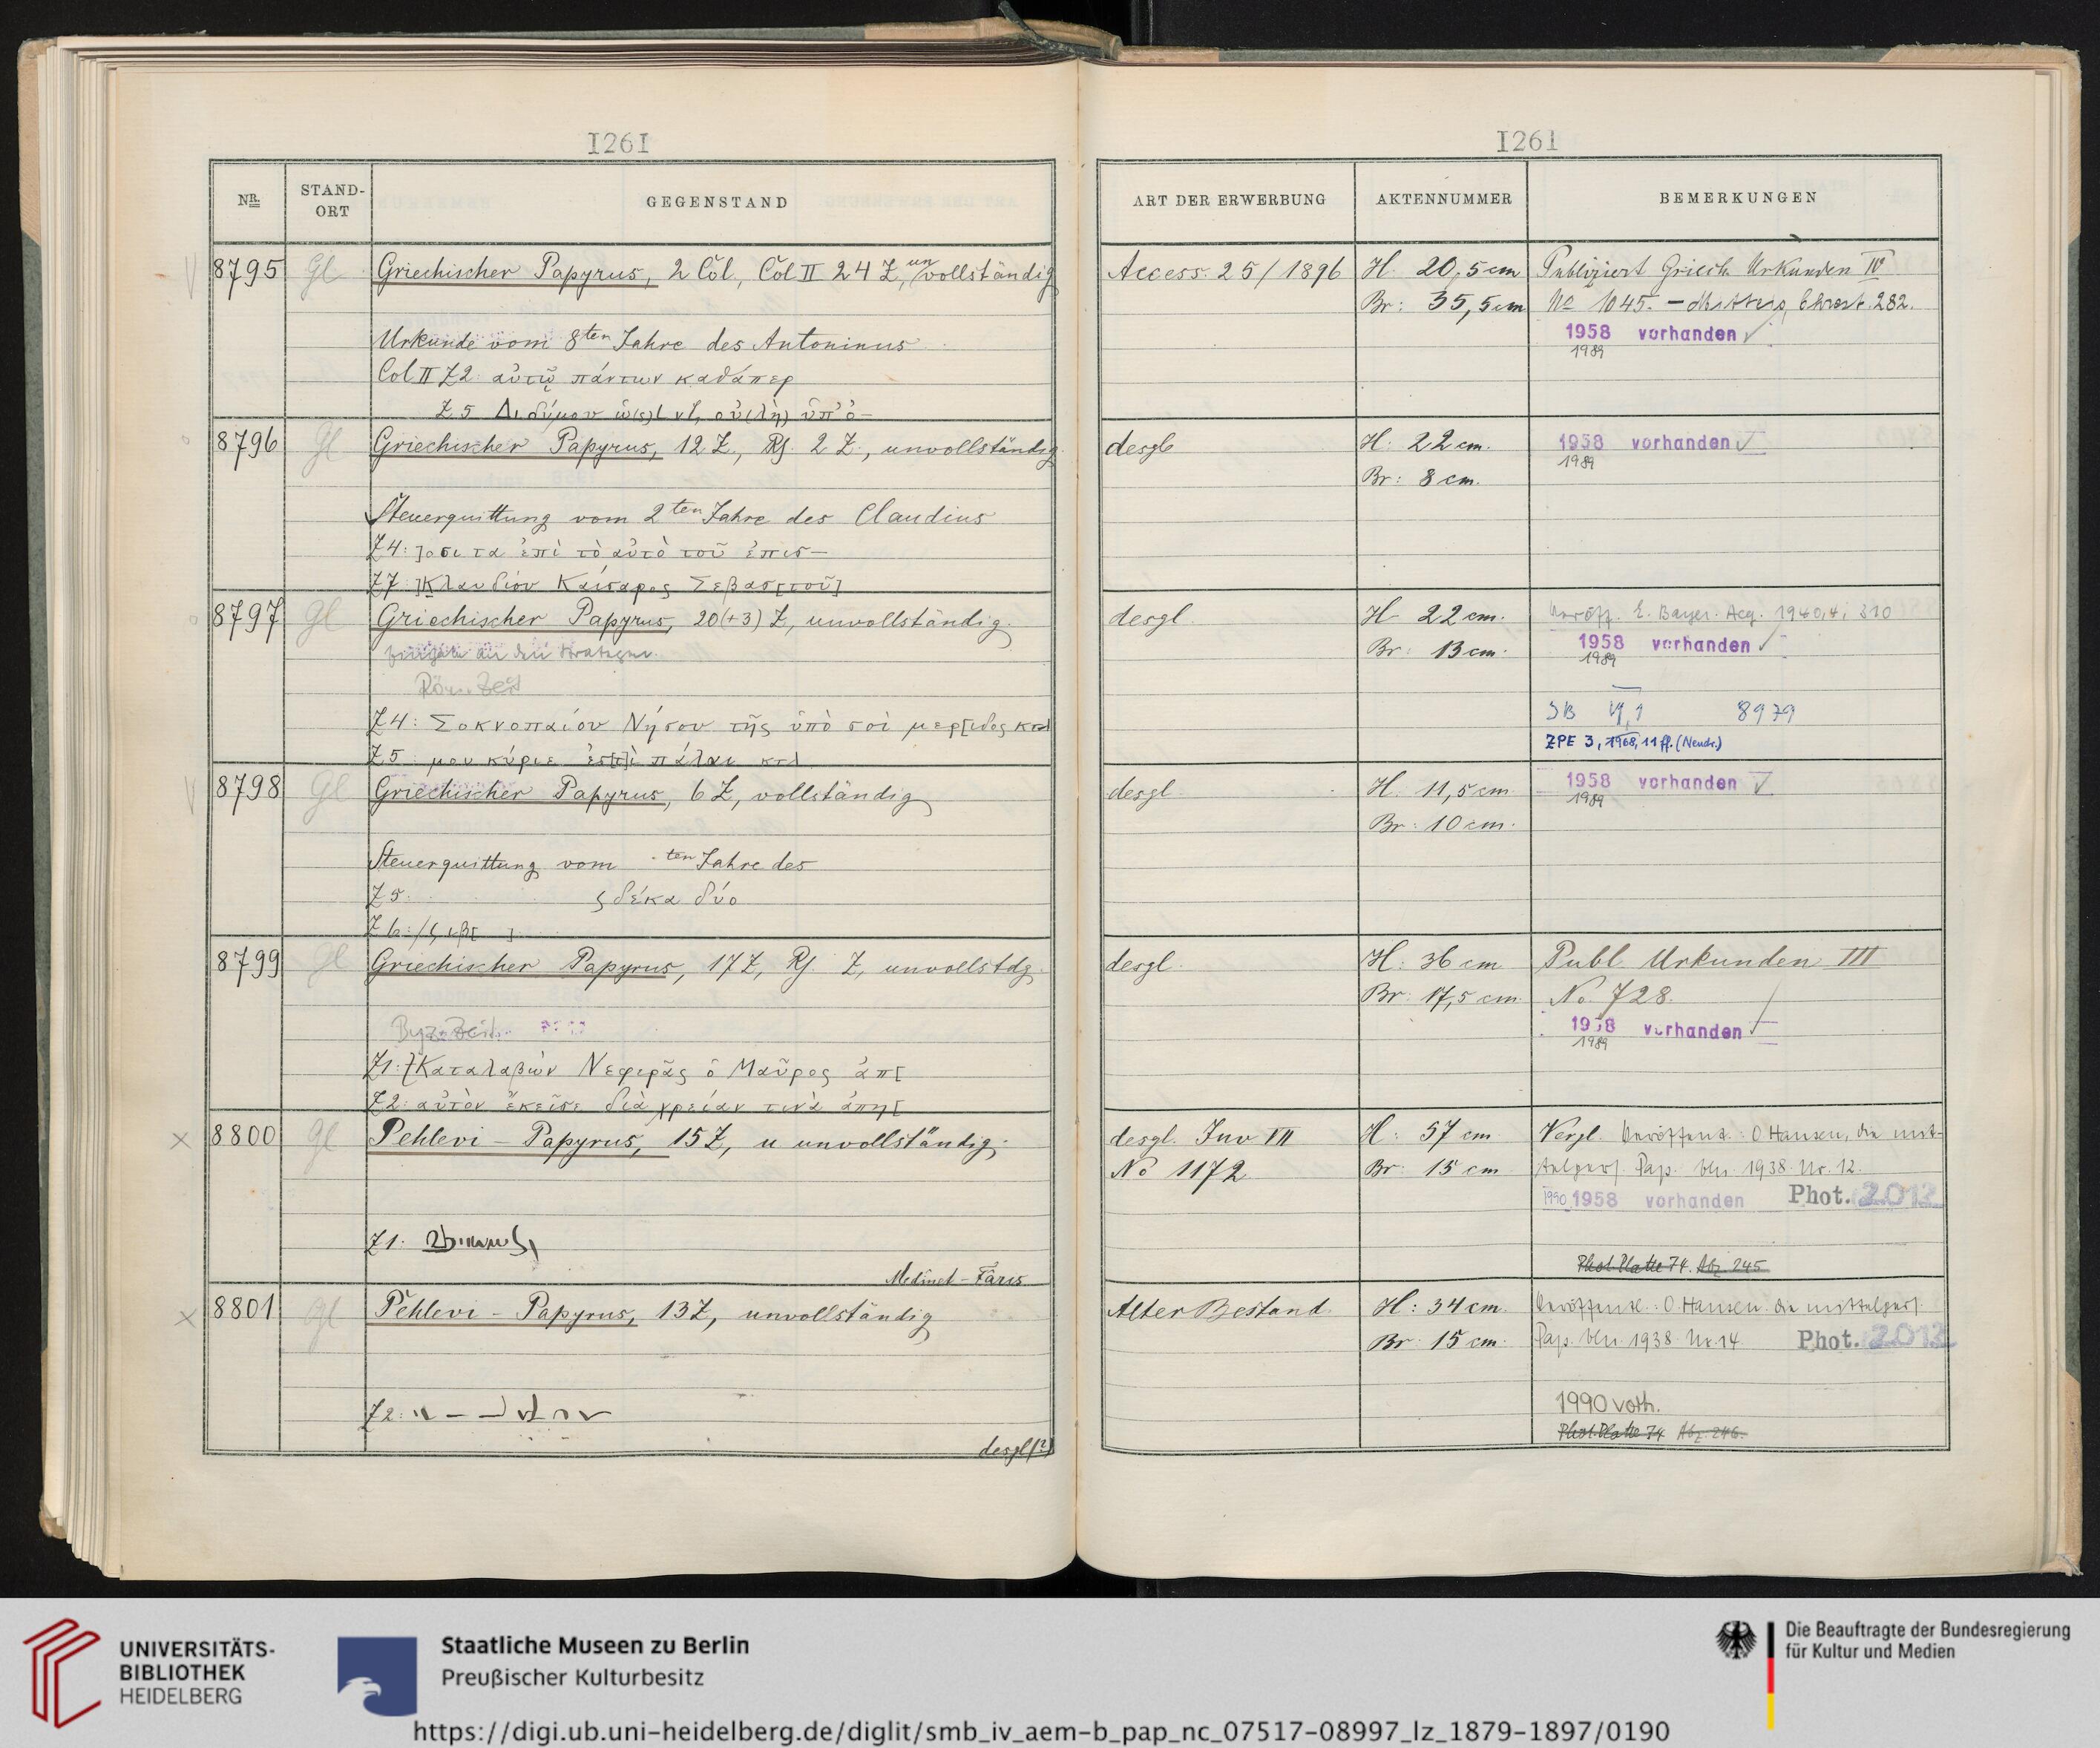 1261
NR.
STAND-
ORT
GEGENSTAND
8795 Gl Griechischer Papyrus, 2 Col., Col II 24 Z, unvollständig
Urkunde vom 8ten Jahre des Antoninus
Col II Z2: αὐτῷ πάντων καθάπερ
Z 5 Διδύμου
8796 Gl Griechischer Papyrus, 12 Z., Rs. 2 Z., unvollständig
Steuerquittung vom 2ten Jahre des Claudius
Z4: ]οσι τα ἐπὶ τὸ αὐτὸ τοῦ ἐπισ-
Z7: ]Κλαυδίου Καίσαρος Σεβασ[τοῦ]
8797 Gl Griechischer Papyrus, 20(+3) Z, unvollständig.
Eingabe an den Strategen.
Röm. Zeit
Z4: Σοκνοπαίου Νήσου τῆς ὑπὸ σοὶ μερ[ίδος κτλ
Z5: μου κύριε ἐπὶ πάλαι κτλ
8798 Gl Griechischer Papyrus, 6 Z, vollständig
Steuerquittung vom ten Jahre des
Z5. ς δέκα δύο
Z6:
8799 Gl Griechischer Papyrus, 17 Z, Rs Z, unvollstdg.
Byz. Zeit.
Z1: ]Καταλαβὼν Νεφερᾶς ὁ Μαῦρος ἀπ[
Z2: αὐτὸν ἐκεῖσε διὰ χρείαν τινὰ ἀπη[
8800 Gl Pehlevi - Papyrus, 15 Z, u unvollständig.
Z1.
Medinet - Fâris
8801 Gl Pehlevi - Papyrus, 13 Z, unvollständig
Z2:
desgl(?)
1261
ART DER ERWERBUNG
AKTENNUMMER
BEMERKUNGEN
Access. 25/1896 H. 20,5 cm Publiziert Griech. Urkunden IV
Br: 35,5 cm No 1045. - Mitteis, Chrest. 282.
1958 vorhanden ✓
1989
desgl H: 22 cm. 1958 vorhanden ✓
1989
Br: 8 cm.
desgl. H. 22 cm. Veröff. E. Bayer. Aeg. 1940,4, 310
Br: 13 cm. 1958 vorhanden ✓
1989
SB VI,1 8979
ZPE 3, 1968, 11 ff. (Neudr.)
desgl. H. 11,5 cm 1958 vorhanden ✓
1989
Br: 10 cm.
desgl. H: 36 cm Publ Urkunden III
Br: 17,5 cm. No. 728.
1958 vorhanden ✓
1989
desgl. Inv VII H: 57 cm. Vergl. Veröffentl.: O Hansen, die mit-
No 1172 Br: 15 cm telpers. Pap. bln. 1938. Nr. 12.
1990 1958 vorhanden Phot. 2012
Phot. Platte 74. Abz. 245
Alter Bestand. H: 34 cm. Veröffentl.: O. Hansen. die mittelpers.
Br: 15 cm. Pap. bln. 1938. Nr. 14 Phot. 2012
1990 vorh.
Phot. Platte 74 Abz. 246.
UNIVERSITÄTS-
BIBLIOTHEK
HEIDELBERG
Staatliche Museen zu Berlin
Preußischer Kulturbesitz
Die Beauftragte der Bundesregierung
für Kultur und Medien
https://digi.ub.uni-heidelberg.de/diglit/smb_iv_aem-b_pap_nc_07517-08997_lz_1879-1897/0190